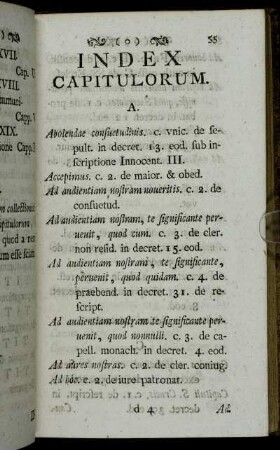 XVII.
Cap. I
VIII.
( o ) 55
INDEX
CAPITULORUM.
A.
Abolendae consuetudinis. c. vnic. de se-
pult. in decret. 13. eod. sub in-
scriptione Innocent. III.
Accepimus. c. 2. de maior. & obed.
Ad audientiam nostram noueritis. c. 2. de
consuetud.
Ad audientiam nostram, te significante per-
uenit, quod cum. c. 3. de cler.
non resid. in decret. 15. eod.
Ad audientiam nostram, te significante,
peruenit, quod quidam. c. 4. de
praebend. in decret. 31. de re-
script.
Ad audientiam nostram te significante per-
uenit, quod nonnulli. c. 3. de ca-
pell. monach. in decret. 4. eod.
Ad aures nostras. c. 2. de cler. coniug.
Ad hoc. c. 2. de iure patronat.
d 4 Ad